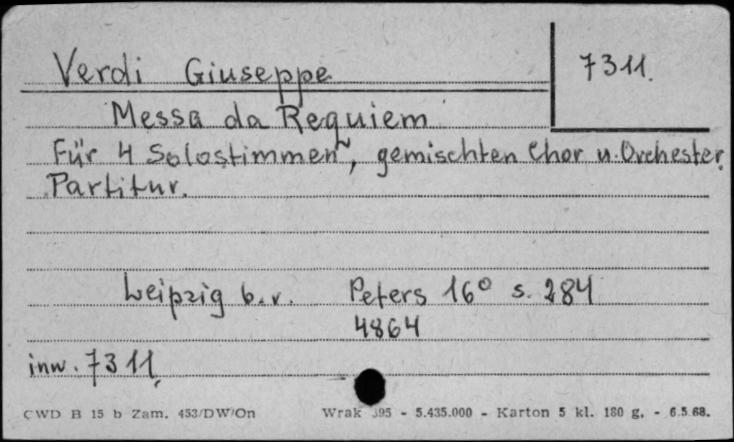 Verdi Giuseppe
7311.
Messa da Requiem
Für 4 Solostimmen, gemischten Chor u. Orchester.
Partitur.
Leipzig b.r. Peters 16° s. 284
4864
inw. 7311.
CWD B 15 b Zam. 453/DW/On Wrak 395 - 5.435.000 - Karton 5 kl. 180 g. - 6.5.68.